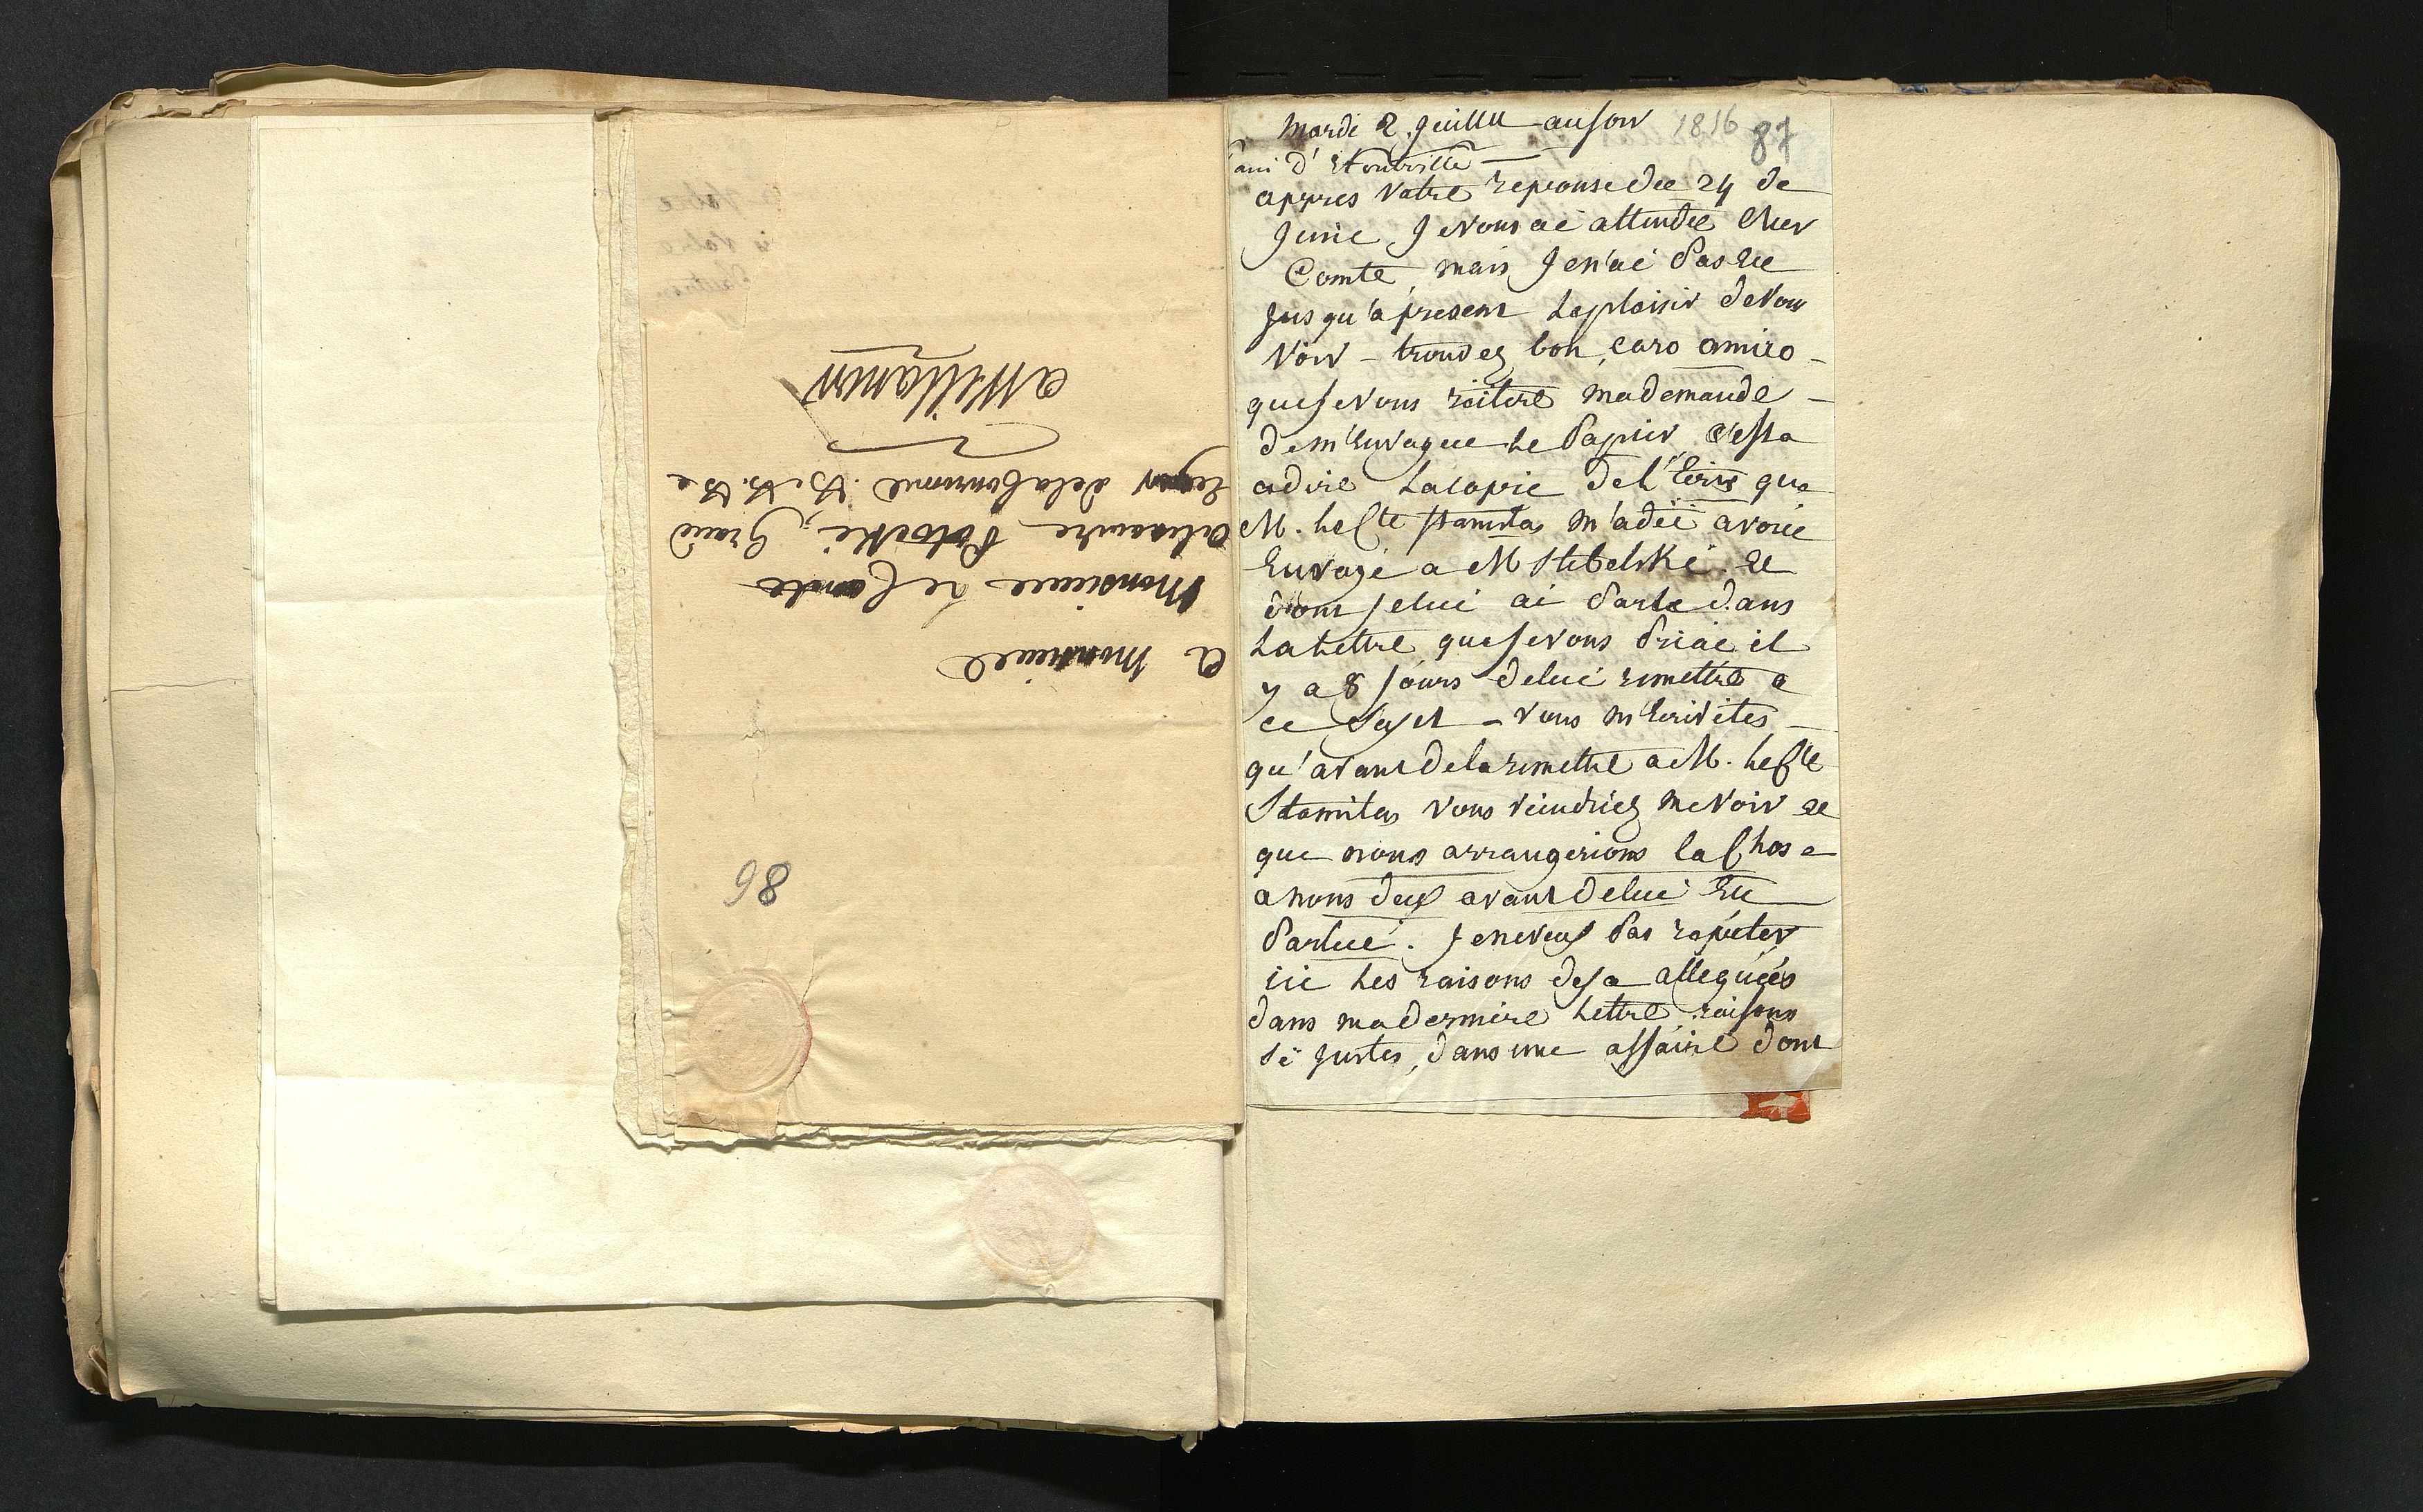 A Monsieur
Monsieur le Comte
Alexandre Potocki, Grand
de la Couronne & & &
a Willanow
86
Mardi 2. Juillet au soir 1816 87
appres Votre reponse du 24 de
Juine Je Vous ai attendu Cher
Comte, mais Je n'ai Pas Eu
Jusqu'a present Le plaisir de Vous
Voir – trouvez bon, caro amico –
que Je Vous reitere ma demande –
de m'Envoyer Le Papier c'est a
a dire La copie de l'Ecrit que
M. le Cte Stanislas m'a dit avoir
Envoyé a M Stebelski Et
dont Je lui ai Parlé dans
La Lettre que Je vous Priai il
y a 8 Jours de lui remettre a
ce Sujet – Vous m'Ecrivites –
qu'avant de la remettre a M. le Cte
Stanislas Vous viendriez me Voir Et
que nous arrangerions la Chose
a nous deux avant de lui En
Parler. Je ne veux Pas repeter
ici Les raisons deja alleguées
dans ma derniere Lettre, raisons
Si Justes, dans une affaire dont